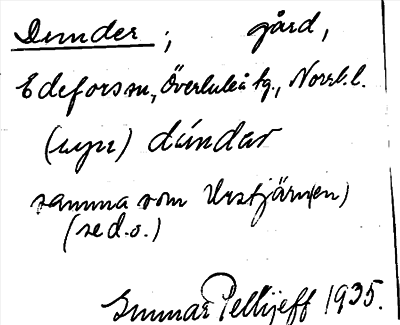 Dunder; gård,
Edefors sn, Överluleå tg., Norrb. l.
(uyn) dúndar
samma som Urstjärn(en)
(se d.o.)
Gunnar Pellijeff 1935.